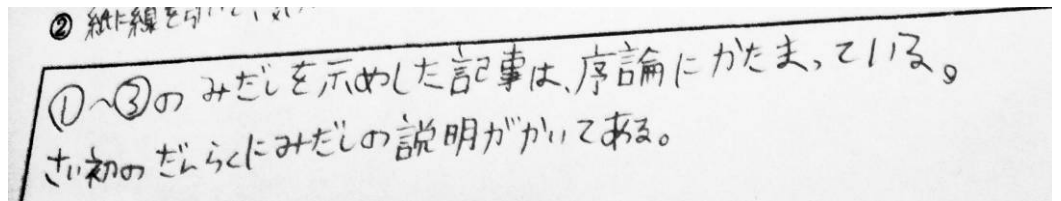 ② 紙に線を引いて、
①~③の みだしを示めした記事は、序論に かたまっている。
さい初の だんらくにみだしの説明がかいてある。